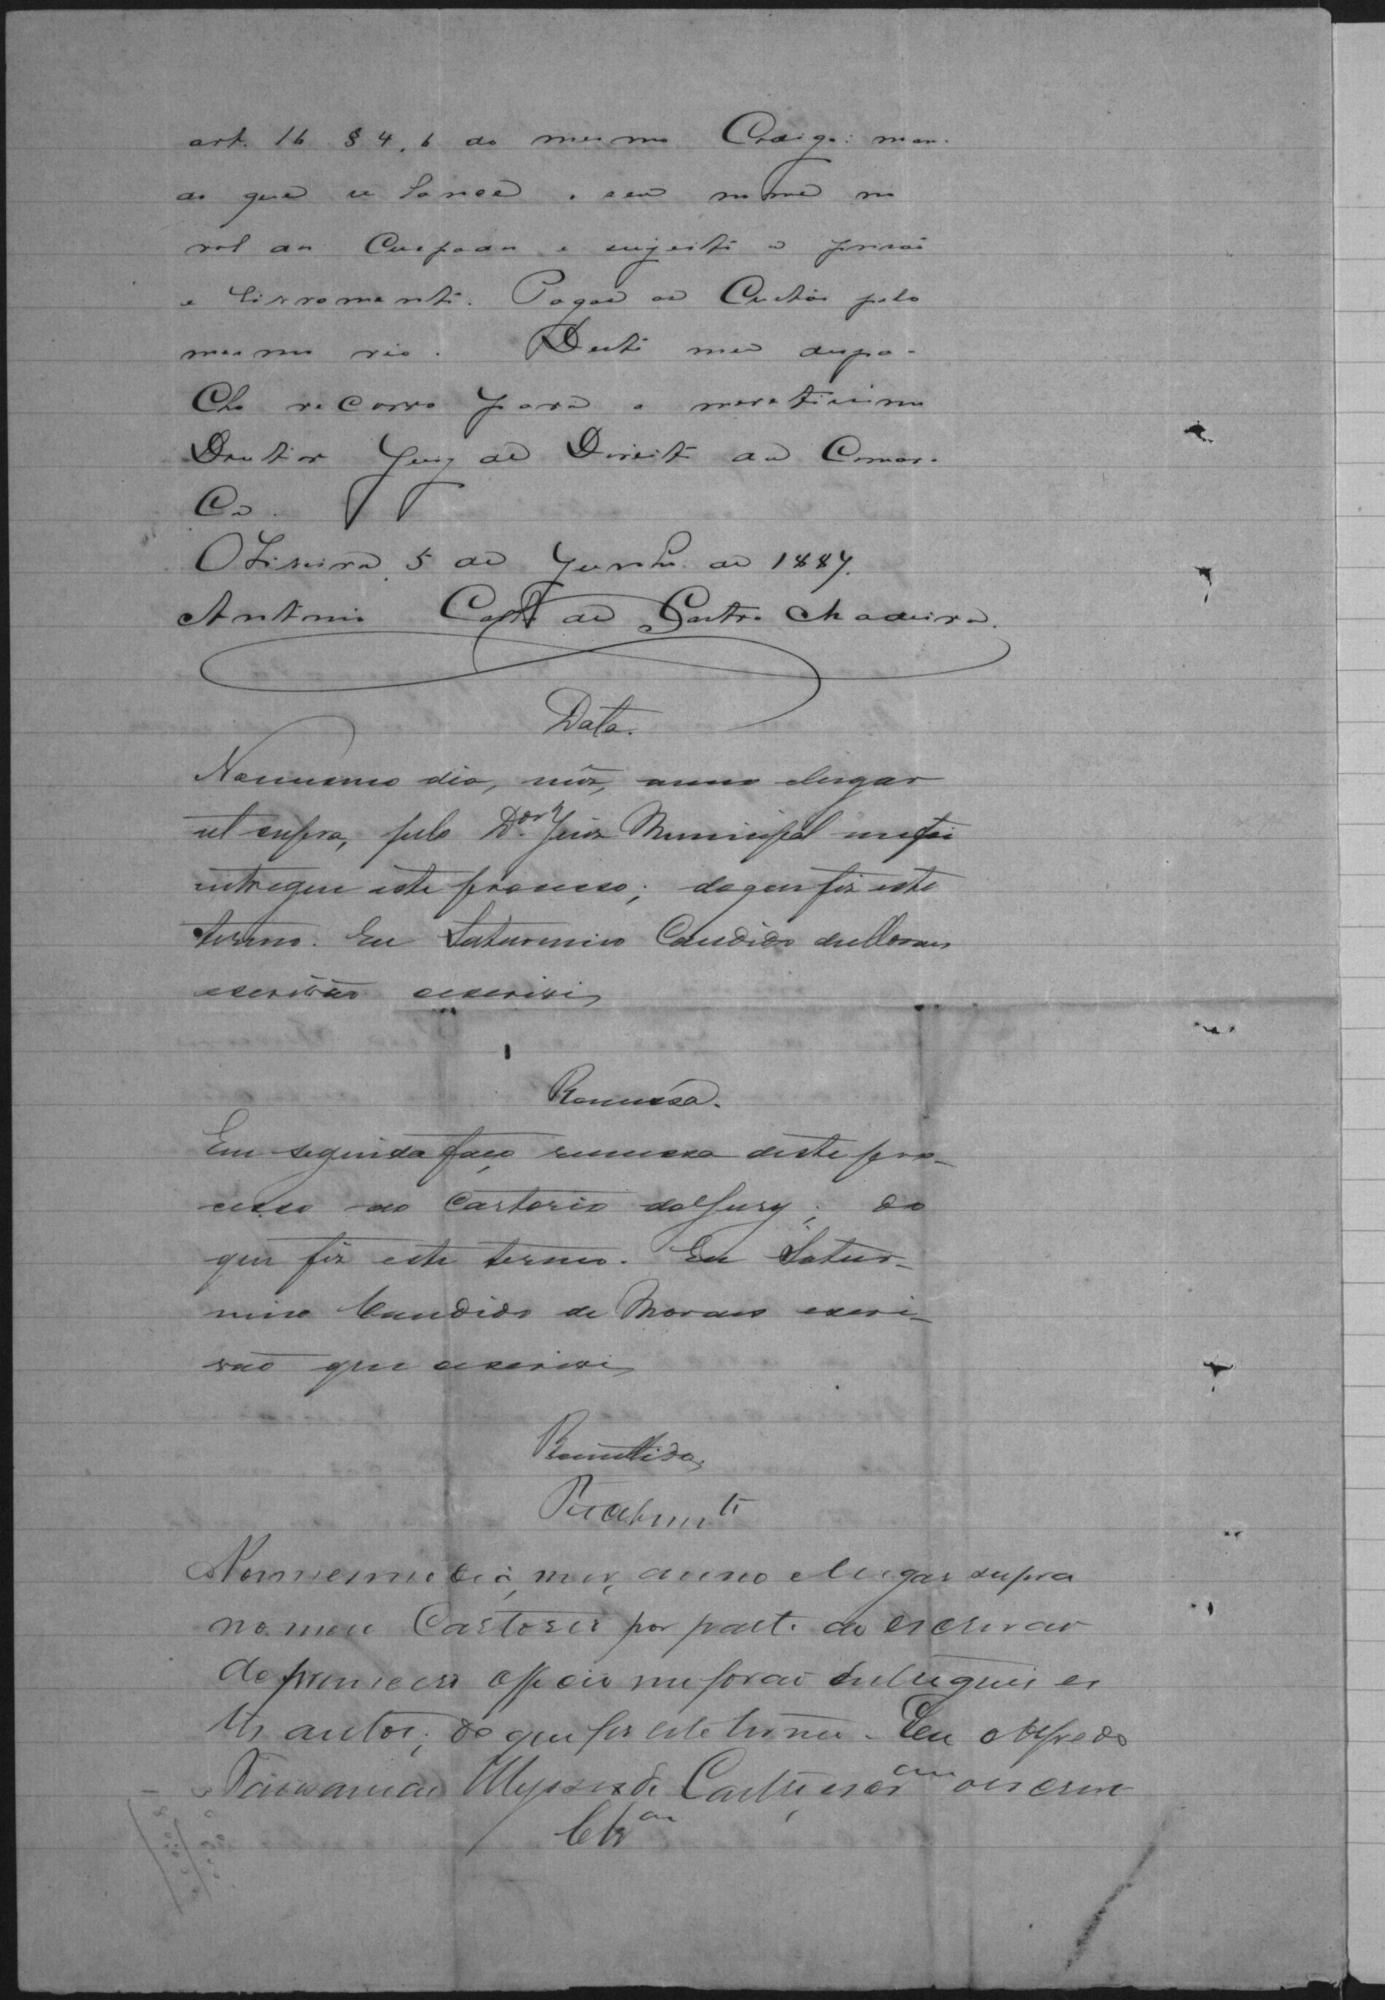 art. 16 § 4, 6 do mesmo Codigo: man-
do que se lance o seu nome no
rol dos Culpados e sujeito a prisão
e livramento. Pague as Custas pelo
mesmo réo. Deste meu despa-
Cho recorro para o meretissimo
Doutor Juiz de Direito da Comar-
Ca.
Oliveira 5 de Junho de 1887.
Antonio Costa de Castro Madeira.
Data.
No mesmo dia, mêz, anno e lugar
ut supra, pelo Dor. Juiz Municipal me foi
entregue este processo; do que fiz este
termo. Eu Saturnino Candido de Moraes
escrivão o escrivi
Remessa.
Em seguida faço remessa deste pro-
cesso ao Cartorio do Jury; do
que fiz este termo. Eu Satur-
nino Candido de Moraes escri-
vão que o escrivi
Remettido,
Recebimto
No mesmo dia, mez, anno e lugar supra
no meu Cartorio por parte do escrivão
do primeiro officio me forão entregues es
tes autos; do que fiz este termo. Eu Alfredo
de Castro escrivão o escrevi
Clsão